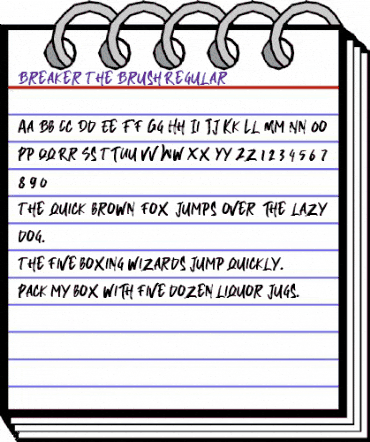 BREAKER THE BRUSH REGULAR
AA BB CC DD EE FF GG HH II JJ KK LL MM NN OO
PP QQ RR SS TT UU VV WW XX YY ZZ 1 2 3 4 5 6 7
8 9 0
THE QUICK BROWN FOX JUMPS OVER THE LAZY
DOG.
THE FIVE BOXING WIZARDS JUMP QUICKLY.
PACK MY BOX WITH FIVE DOZEN LIQUOR JUGS.